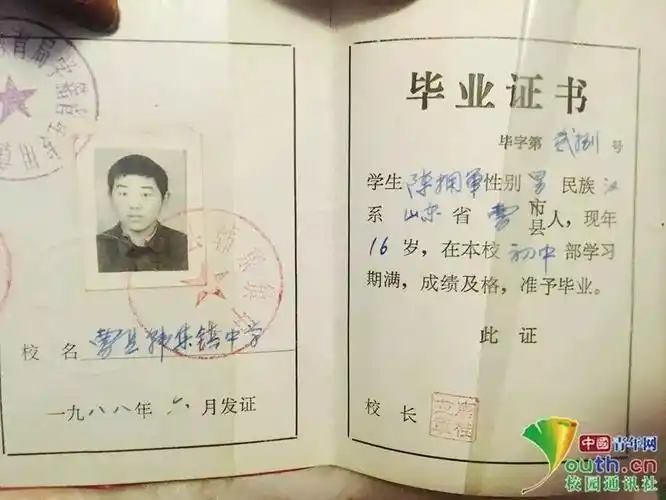 校名 曹县韩集镇中学
一九八八年 六月发证
毕业证书
毕字第 贰捌 号
学生 陈拥军 性别 男 民族 汉
系 山东 省 曹 市县 人，现年
16 岁，在本校 初中 部学习
期满，成绩及格，准予毕业。
此证
校长
中国青年网
Youth.cn
校园通讯社